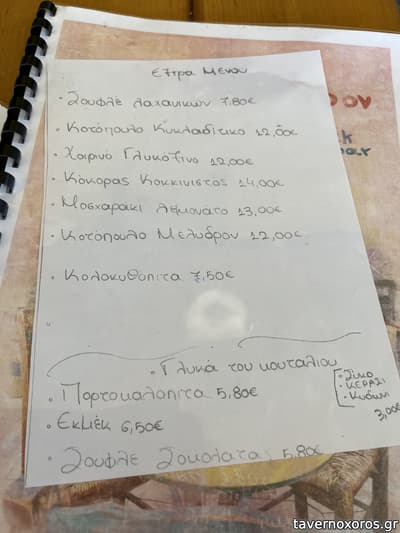 Εξτρα Μενου
• Σουφλέ Λαχανικών 7,80€
• Κοτόπουλο Κυκλαδίτικο 12,00€
• Χοιρινό Γλυκόξινο 12,00€
• Κόκορας Κοκκινιστός 14,00€
• Μοσχαράκι Λεμονάτο 13,00€
• Κοτόπουλο Μελυδρον 12,00€
• Κολοκυθόπιτα 7,50€
• Γλυκά του κουταλιού
• Σύκο
• ΚΕΡΑΣΙ
• Κυδώνι
3,00€
• Πορτοκαλόπιτα 5,80€
• Εκμέκ 6,50€
• Σουφλέ Σοκολάτας 5,80€
tavernoxoros.gr